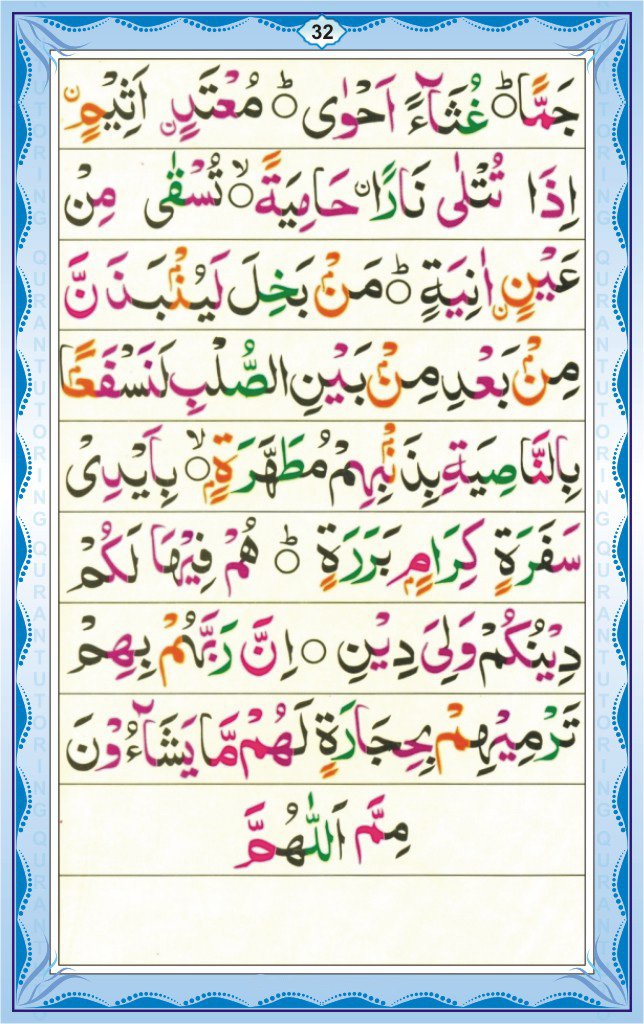 32
جَمًّا ۝ؕ غُثَآءً اَحْوٰى ۝ؕ مُعْتَدٍ اَثِيْمٍ
اِذَا تُتْلٰى نَارًا حَامِيَةً ۝ۙ تُسْقٰى مِنْ
عَيْنٍ اٰنِيَةٍ ۝ؕ مَنْۢ بَخِلَ لَيُنْۢبَذَنَّ
مِنْۢ بَعْدِ مِنْۢ بَيْنِ الصُّلْبِ لَنَسْفَعًۢا
بِالنَّاصِيَةِ بِذَنْۢبِهِمْ مُطَهَّرَةٍۢ ۝ۙ بِاَيْدِىْ
سَفَرَةٍ كِرَامٍۢ بَرَرَةٍ ۝ؕ هُمْ فِيْهَا لَكُمْ
دِيْنُكُمْ وَلِىَ دِيْنِ ۝ اِنَّ رَبَّهُمْ بِهِمْ
تَرْمِيْهِمْ بِحِجَارَةٍ لَهُمْ مَّا يَشَآءُوْنَ
مِمَّ اَللّٰهُمَّ
QURAN TUTORING